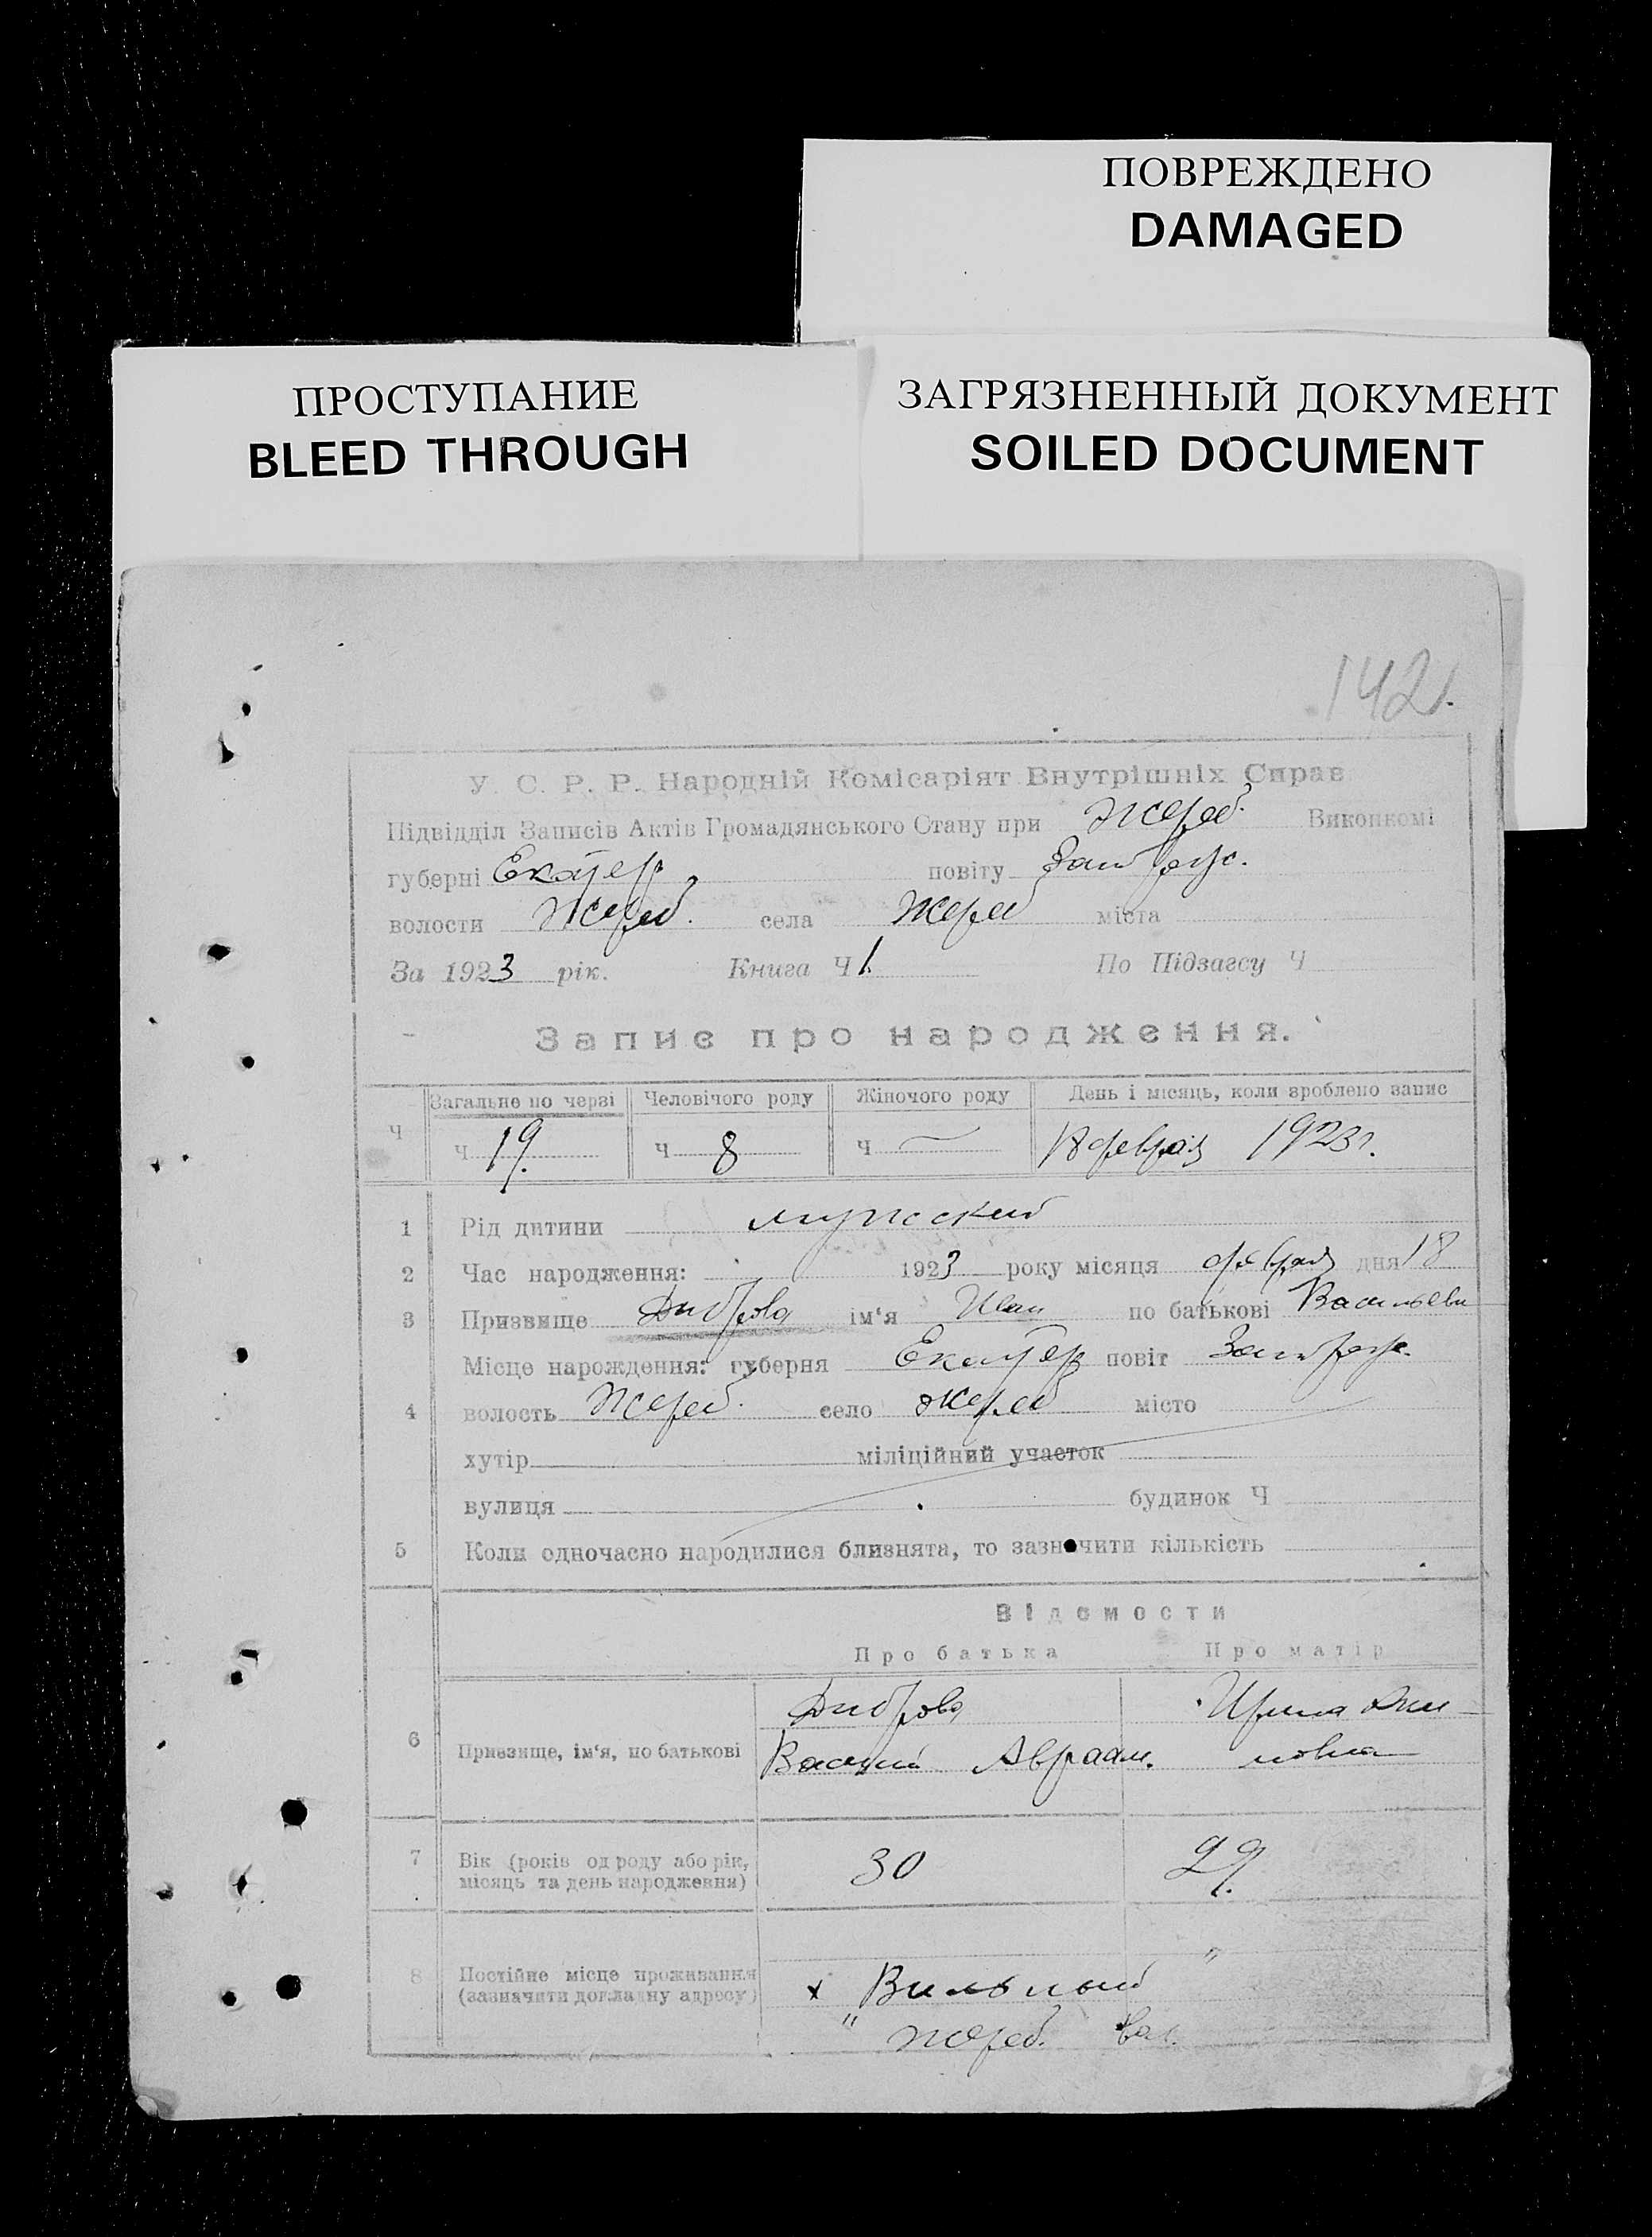 ПОВРЕЖДЕНО
DAMAGED
ПРОСТУПАНИЕ
BLEED THROUGH
ЗАГРЯЗНЕННЫЙ ДОКУМЕНТ
SOILED DOCUMENT
142
У. С. Р. Р. Народній Комісаріят Внутрішніх Справ
Підвідділ Записів Актів Громадянського Стану при Жереб. Виконкомі
губерні Екатер повіту Запорож.
волости Жереб. села Жереб міста
За 1923 рік. Книга Ч 1. По Підзагсу Ч
Запис про народження.
Ч Загальне по черзі Человічого роду Жіночого роду День і місяць, коли зроблено запис
Ч 19. Ч 8 Ч — 18 февраля 1923 г.
1 Рід дитини мужской
2 Час народження: 1923 року місяця февраля дня 18
3 Призвище Диброва ім'я Иван по батькові Васильеви
Місце нарождення: губерня Екатер повіт Запорож.
4 волость Жереб. село Жереб місто
хутір міліційний участок
вулиця будинок Ч
5 Коли одночасно народилися близнята, то зазначити кількість
Відомости
Про батька Про матір
Диброва Ирина
6 Призвище, ім'я, по батькові Василий Авраам. новна
7 Вік (років од роду або рік, 30 29.
місяць та день народження)
8 Постійне місце проживання х Вильный "
(зазначити докладну адресу) " Жереб. вол.